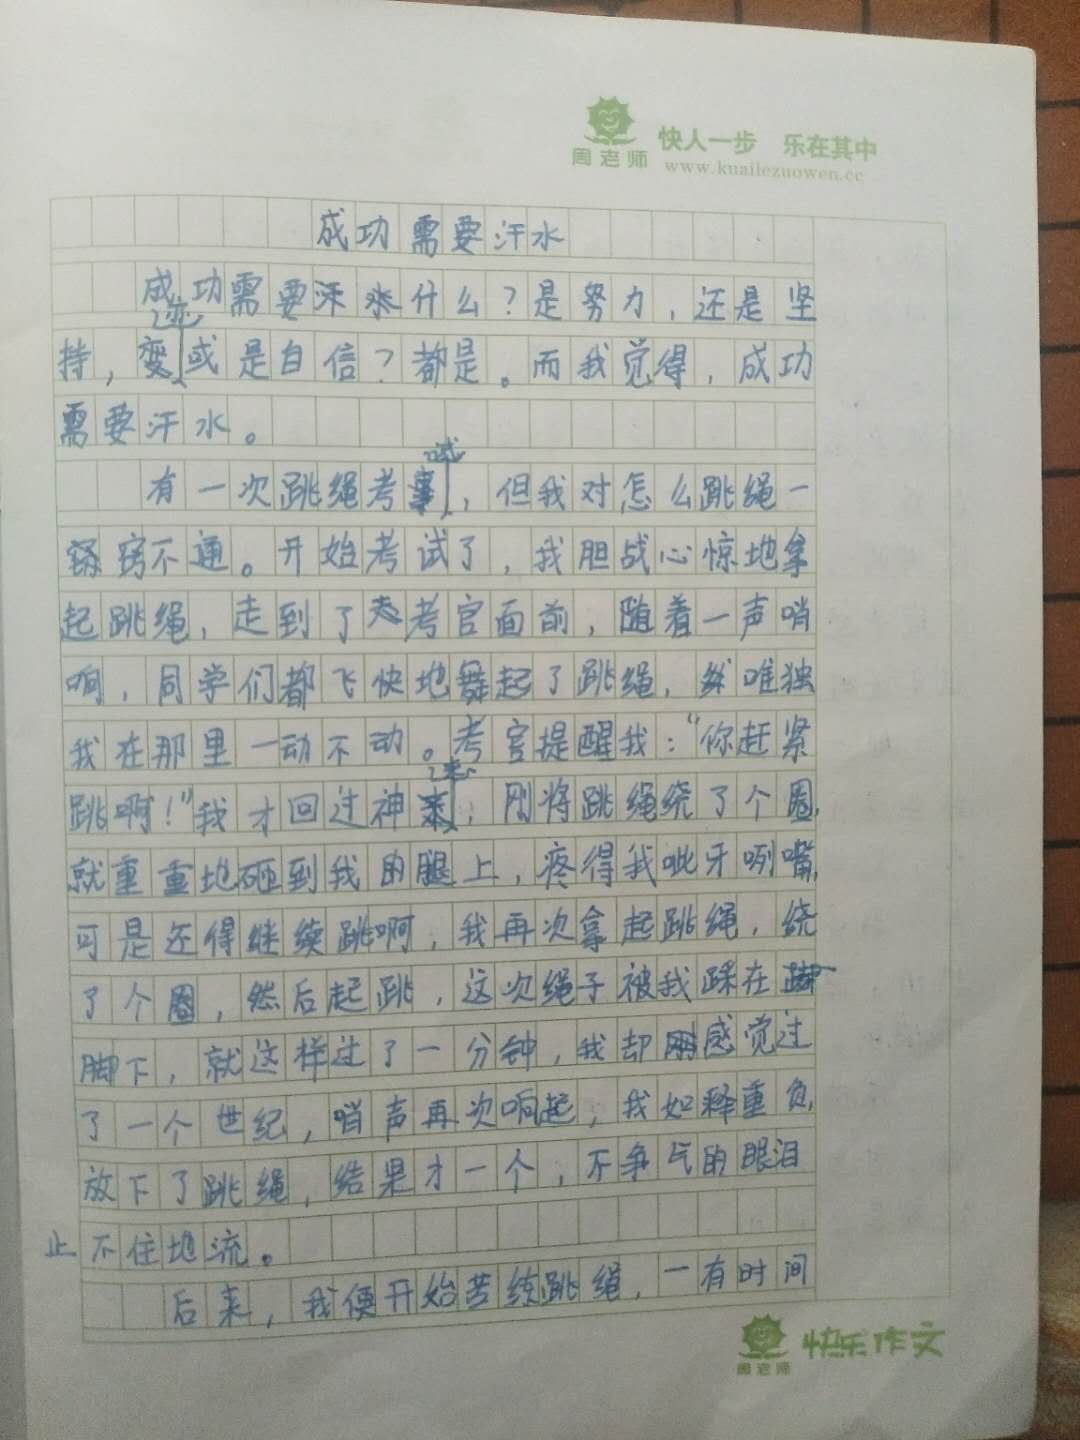 周老师 快人一步 乐在其中
www.kuailezuowen.cc
成功需要汗水
成功需要汗水什么？是努力，还是坚
持，亦或是自信？都是。而我觉得，成功
需要汗水。
有一次跳绳考试，但我对怎么跳绳一
窍不通。开始考试了，我胆战心惊地拿
起跳绳，走到了考官面前，随着一声哨
响，同学们都飞快地舞起了跳绳，唯独
我在那里一动不动。考官提醒我："你赶紧
跳啊！"我才回过神来，刚将跳绳绕了个圈，
就重重地砸到我的腿上，疼得我呲牙咧嘴，
可是还得继续跳啊，我再次拿起跳绳，绕
了个圈，然后起跳，这次绳子被我踩在
脚下，就这样过了一分钟，我却感觉过
了一个世纪，哨声再次响起，我如释重负，
放下了跳绳，结果才一个，不争气的眼泪
止不住地流。
后来，我便开始苦练跳绳，一有时间
周老师 快乐作文